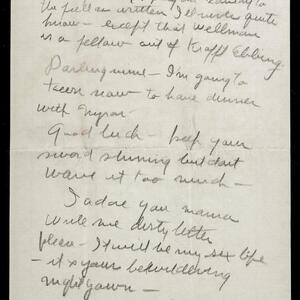 the full as written I'll never quite
know — except that Wellman
is a fellow out of Krafft Ebbing.
Darling mine — I'm going to
town now to have dinner
with Myron.
Good luck — keep your
sword shining but don't
wave it too much —
I adore you mama
write me dirty letter
please — I will be my sex life
— it & your bewildering
nightgown —